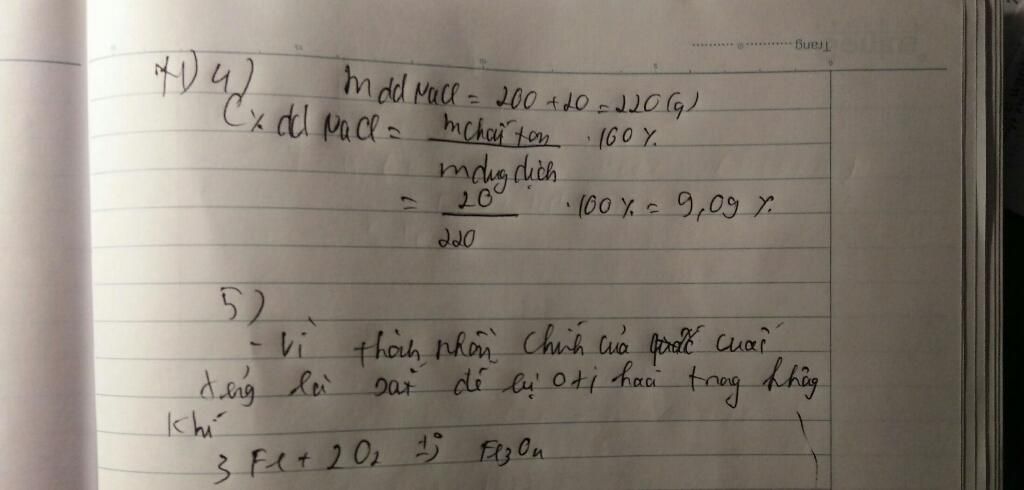 Trang
4) mdd NaCl = 200 + 20 = 220 (g)
C% dd NaCl = mchất tan / mdung dịch . 100 %
= 20 / 220 . 100 % = 9,09 %
5)
- Vì thành phần chính của cuốc
xẻng là sắt dễ bị oxi hoá trong không
khí
3 Fe + 2 O2 t° → Fe3O4